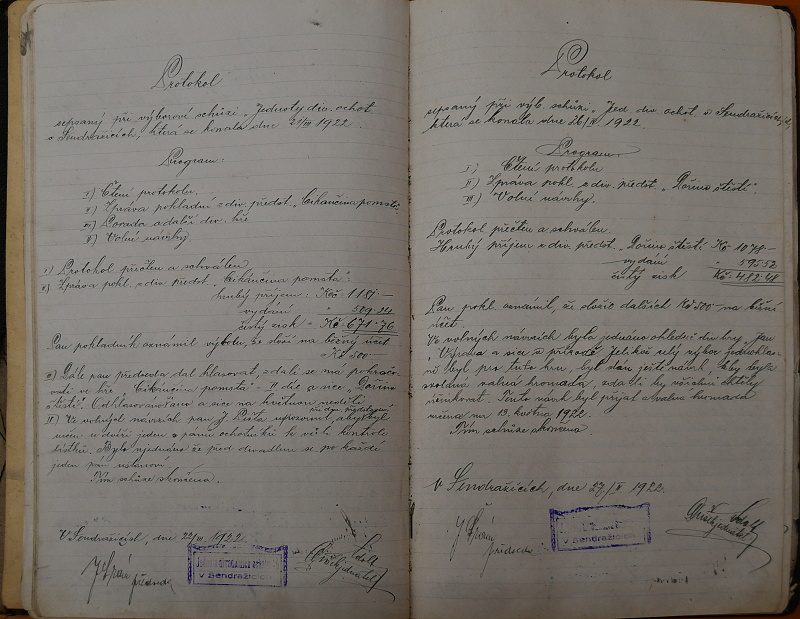 Protokol
sepsaný při výborové schůzi "Jednoty div. ochot.
v Sendražicích, která se konala dne 21/III 1922.
Program:
I.) Čtení protokolu.
II.) Zpráva pokladní z div. předst. "Cikánčina pomsta"
III.) Porada o další div. hře
IV.) Volní návrhy.
I.) Protokol přečten a schválen
II.) Zpráva pohl. z div. předst. "Cikánčina pomsta":
hrubý příjem: Kč 1181·—
vydání 509·24
čistý zisk - Kč 671·76
Pan pokladník oznámil výboru, že složí na běžný účet
Kč 500
III.) Dále pan předseda dal hlasovat, zdali se má pokračo-
vati ve hře "Cikánčina pomsta" II díl a sice, "Dořino
štěstí". Odhlasováno a sice na květnou neděli
při div. představení
IV.) Ve volných návrzích pan J. Píša upozornil, aby byl
jeden z pánů ochotníků k vůli kontrole
lístků. Bylo ujednáno že před divadlem se po každé
jeden pán ustanoví.
Tím schůze skončena.
V Sendražicích, dne 22/III. 1922.
předseda
jednatel
v Sendražicích
Protokol
sepsaný při výb. schůzi "Jed. div. ochot. v Sendražicích,
která se konala dne 26/ 1922.
Program
I.) Čtení protokolu
II.) Zpráva pokl. z div. předst. "Dořino štěstí".
III.) Volné návrhy.
Protokol přečten a schválen.
Hrubý příjem z div. předst. "Dořino štěstí Kč 1078·—
vydání " 595·52
čistý zisk Kč 482·48
Pan pokl. oznámil, že složil dalších Kč 500 na běžní
účet.
Ve volných návrzích bylo jednáno ohledně div. hry "Jan
Výrava a sice v přírodě. Jelikož celý výbor jednohlas-
ně byl pro tuto hru, byl dán ještě návrh, aby byla
svolána valná hromada, zdali by všichni chtěli
účinkovat. Tento návrh byl přijat a valná hromada
určena na 13. května 1922.
Tím schůze skončena.
V Sendražicích, dne 27/ 1922.
předseda
jednatel
v Sendražicích